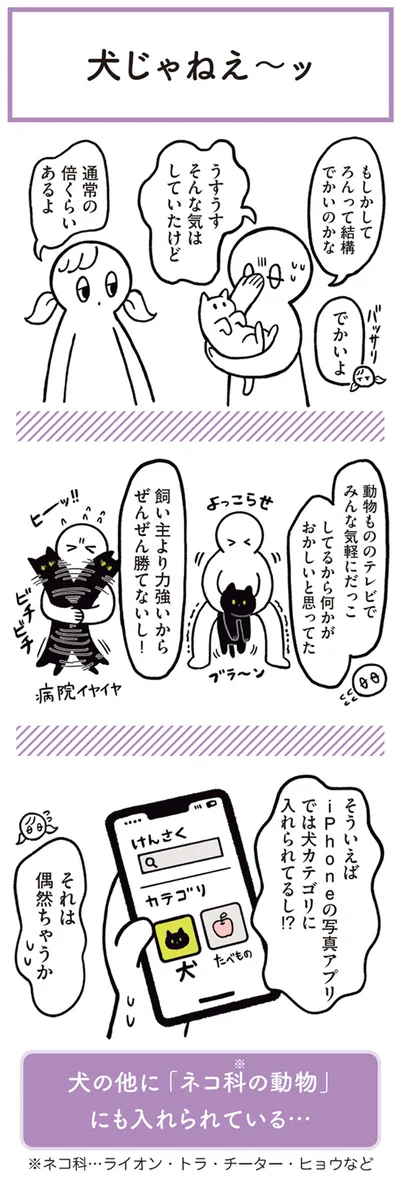 犬じゃねえ〜ッ
もしかして
ろんって結構
でかいのかな
バッサリ
でかいよ
うすうす
そんな気は
していたけど
通常の
倍くらい
あるよ
動物もののテレビで
みんな気軽にだっこ
してるから何かが
おかしいと思ってた
よっこらせ
ブラ〜ン
飼い主より力強いから
ぜんぜん勝てないし!
ヒーッ!!
ビチ
ビチ
病院イヤイヤ
そういえば
iPhoneの写真アプリ
では犬カテゴリに
入れられてるし!?
けんさく
カテゴリ
犬
たべもの
それは
偶然ちゃうか
犬の他に「ネコ科※の動物」
にも入れられている…
※ネコ科…ライオン・トラ・チーター・ヒョウなど